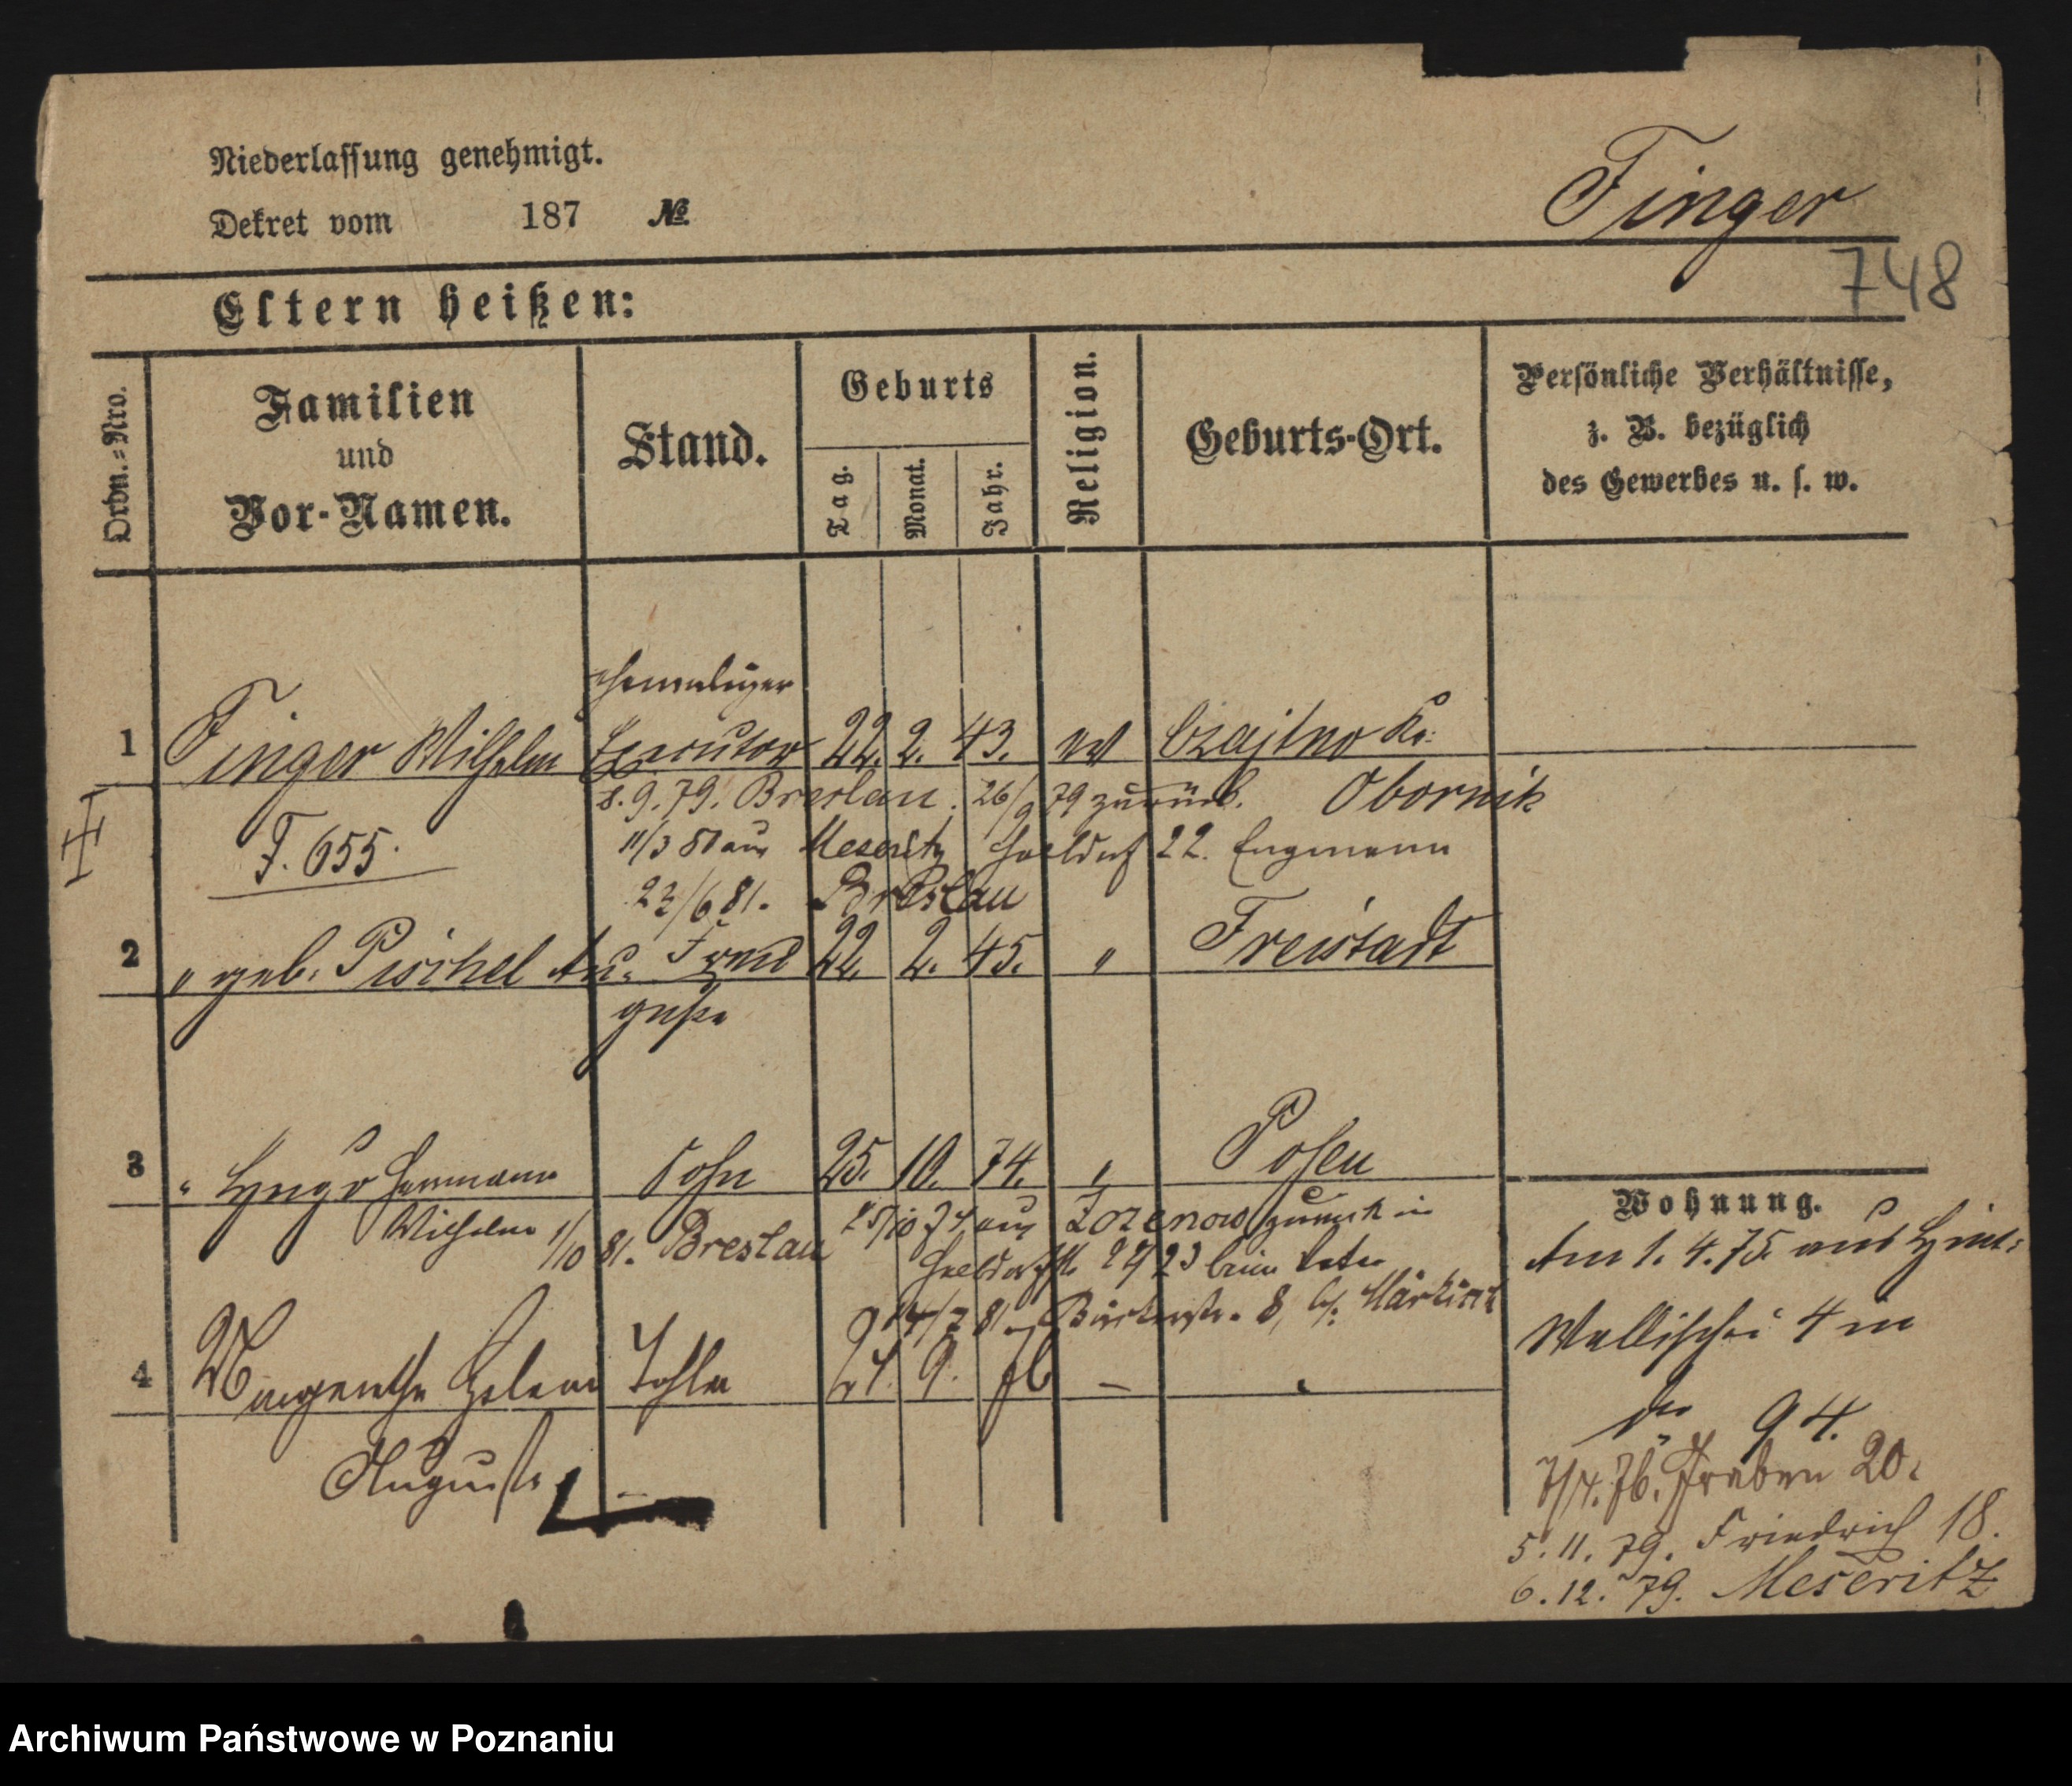 Niederlassung genehmigt.
Dekret vom 187 №
Finger
748
Eltern heißen:
Ordn.=Nro.
Familien
und
Vor-Namen.
Stand.
Geburts
Tag.
Monat.
Jahr.
Religion.
Geburts-Ort.
Persönliche Verhältnisse,
z. B. bezüglich
des Gewerbes u. s. w.
ehemaliger
1 Finger Wilhelm Executor 22. 2. 43. ev Kr:
8.9.79. Breslau. 26/9 79 zurück. Obornik
F. 655.
11/3 aus Meseritz 22. Engmann
/6 81. Breslau
2 " geb. Pischel Au= Frau 22. 2. 45. " Freistadt
guste
3 " Hermann Sohn 25. 10. 74. " Posen
Wilhelm 1/10 81. Breslau 25/10 aus zurück in
beim Vater
/7 81. 8, b/.
4 Margarethe Helene Tochter 9. 76 —
Auguste
Wohnung.
Am 1. 4. 75. aus
Wallischei 4 in
94.
7/4. 76. Graben 20.
5. 11. 79. Friedrich 18.
6. 12. 79. Meseritz
Archiwum Państwowe w Poznaniu